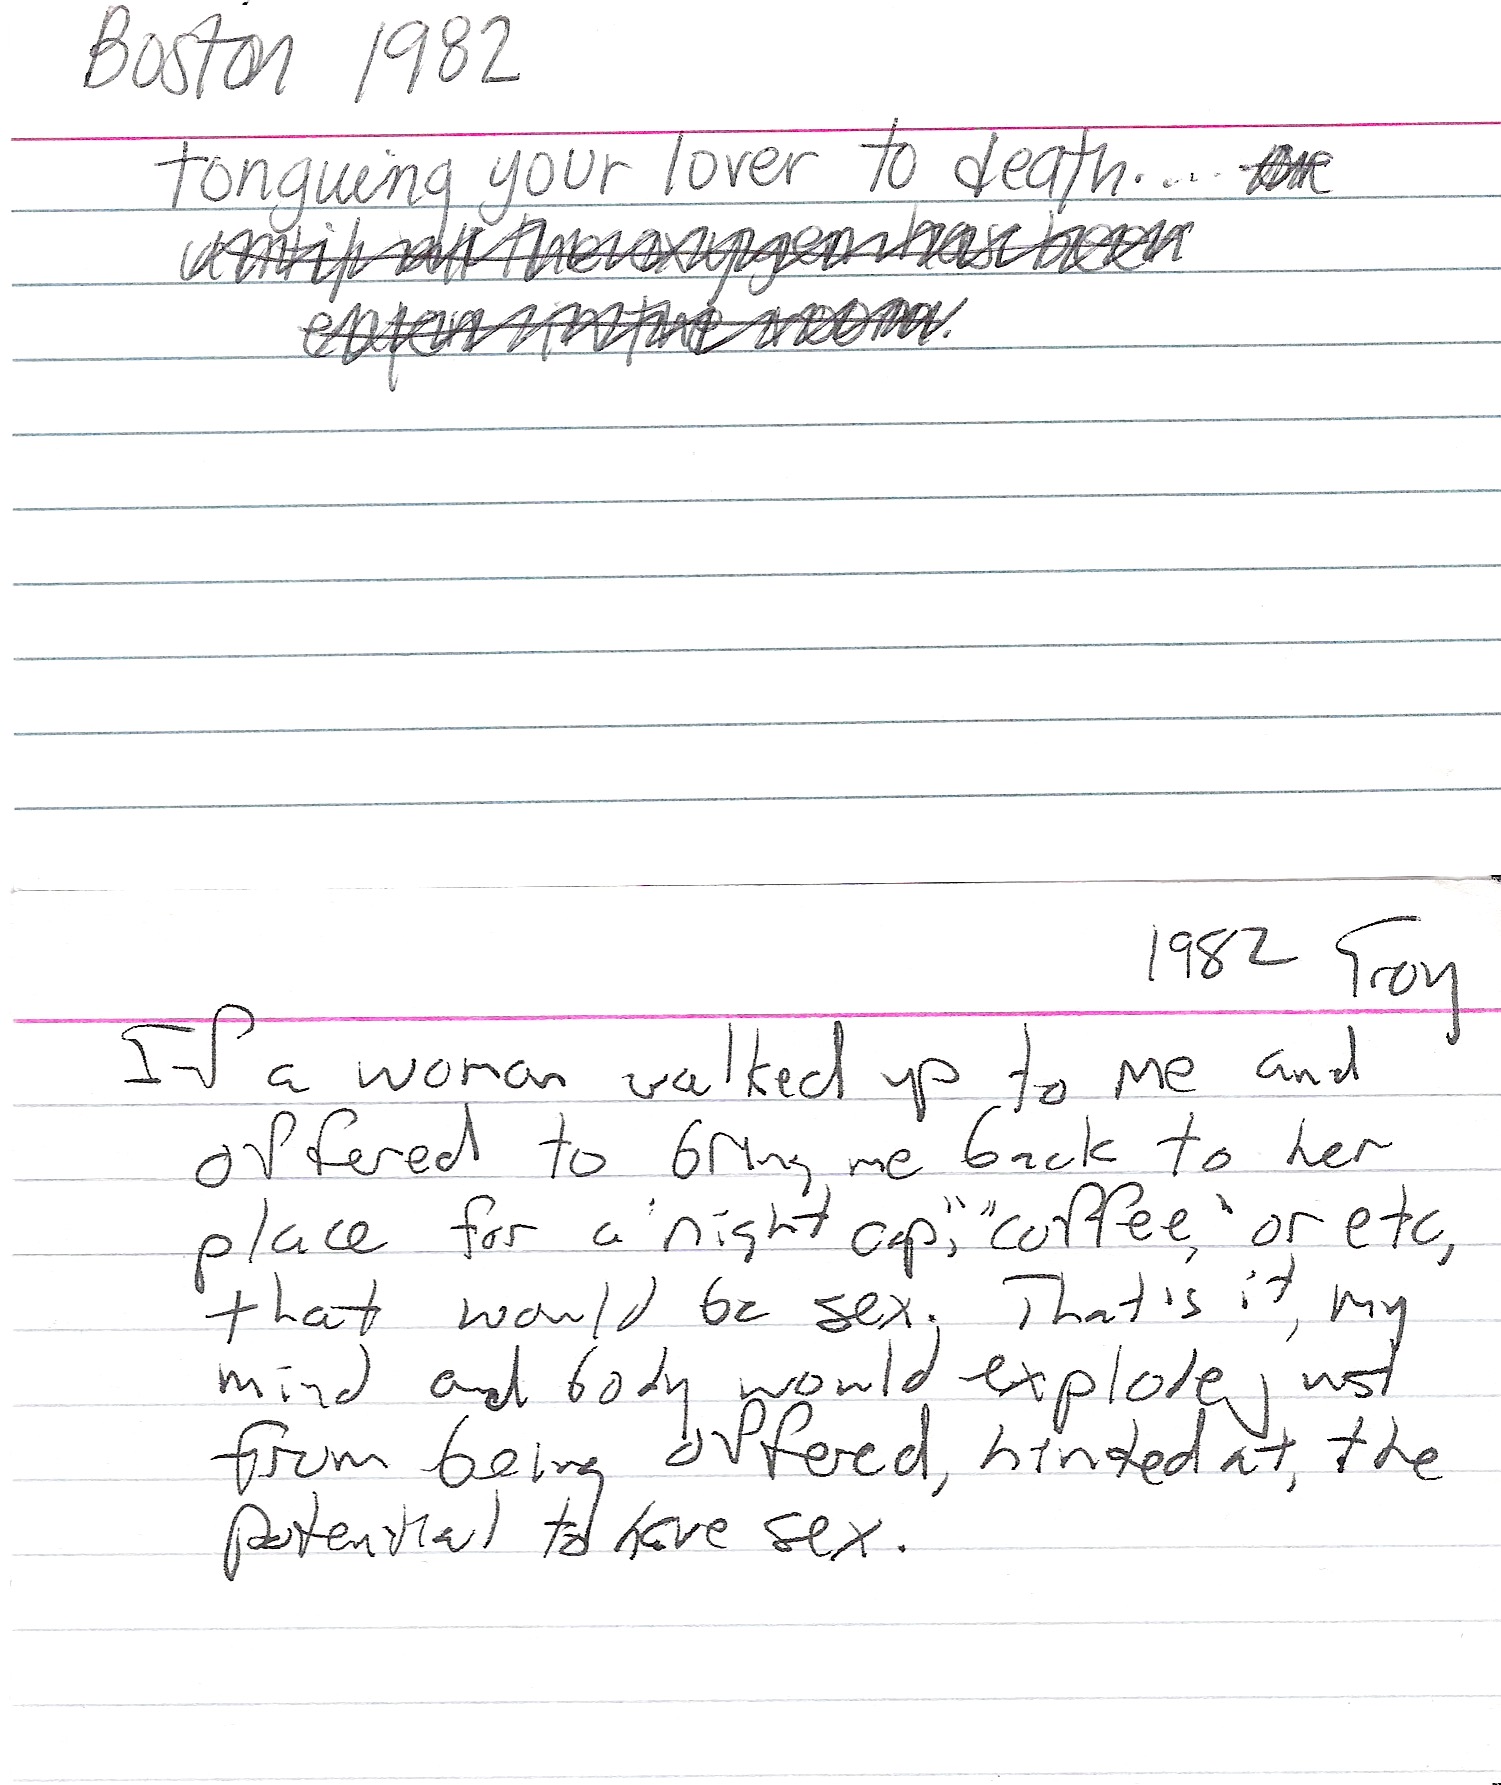 Boston 1982
tonguing your lover to death....
until all the oxygen has been
in the room.
1982 Troy
If a woman walked up to me and
offered to bring me back to her
place for a "night cap," "coffee," or etc,
that would be sex. That's it, my
mind and body would explode, just
from being offered, hinted at, the
potential to have sex.